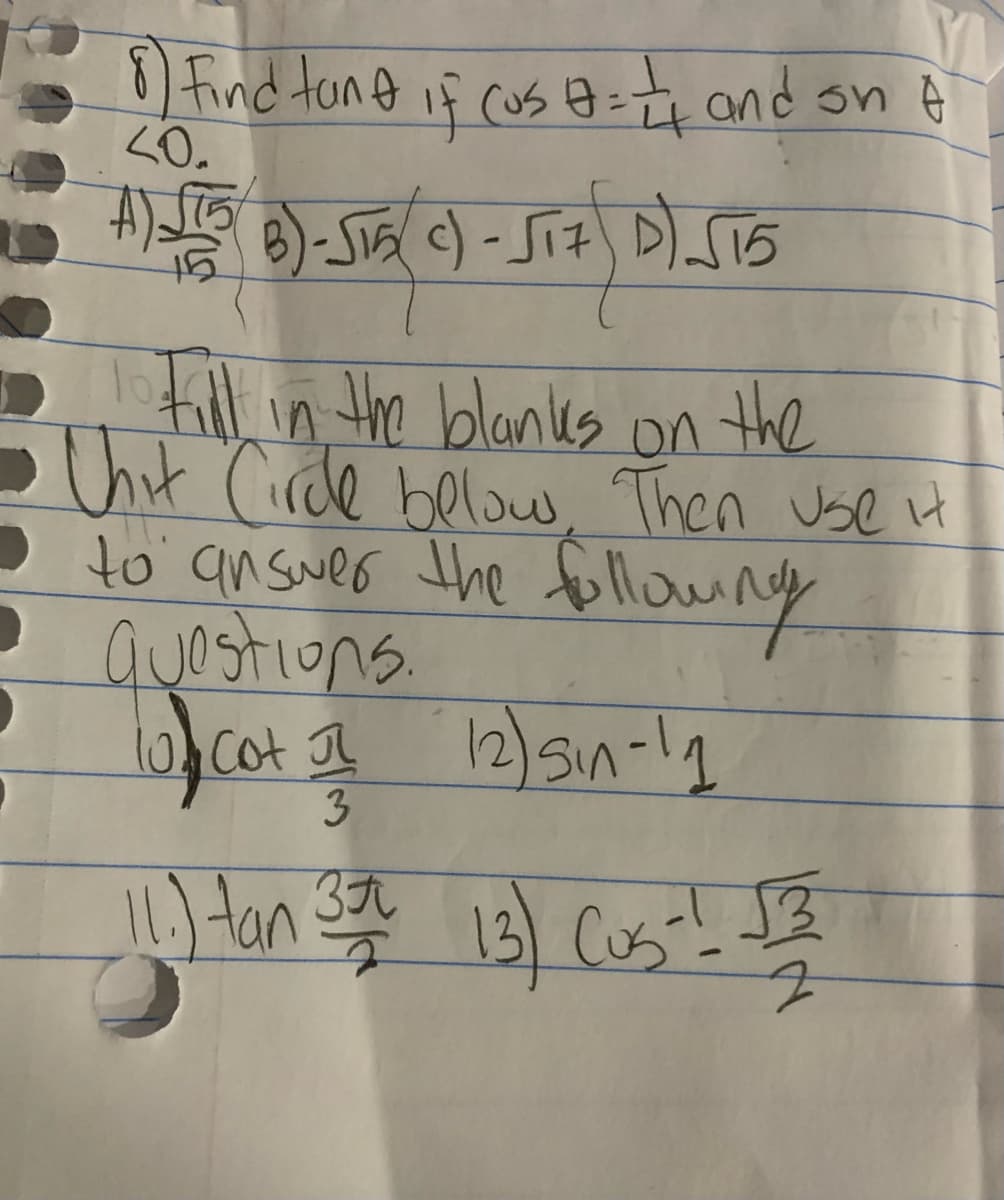 8) Find tan θ if cos θ = 1/4 and sn θ
<0.
A) √15/15 B) -√15 C) -√17 D) √15
Fill in the blanks on the
Unit Circle below. Then use it
to answer the following
questions.
10.) cot π/3 12) sin-1 1
11.) tan 3π/2 13) Cos-1 - √3/2